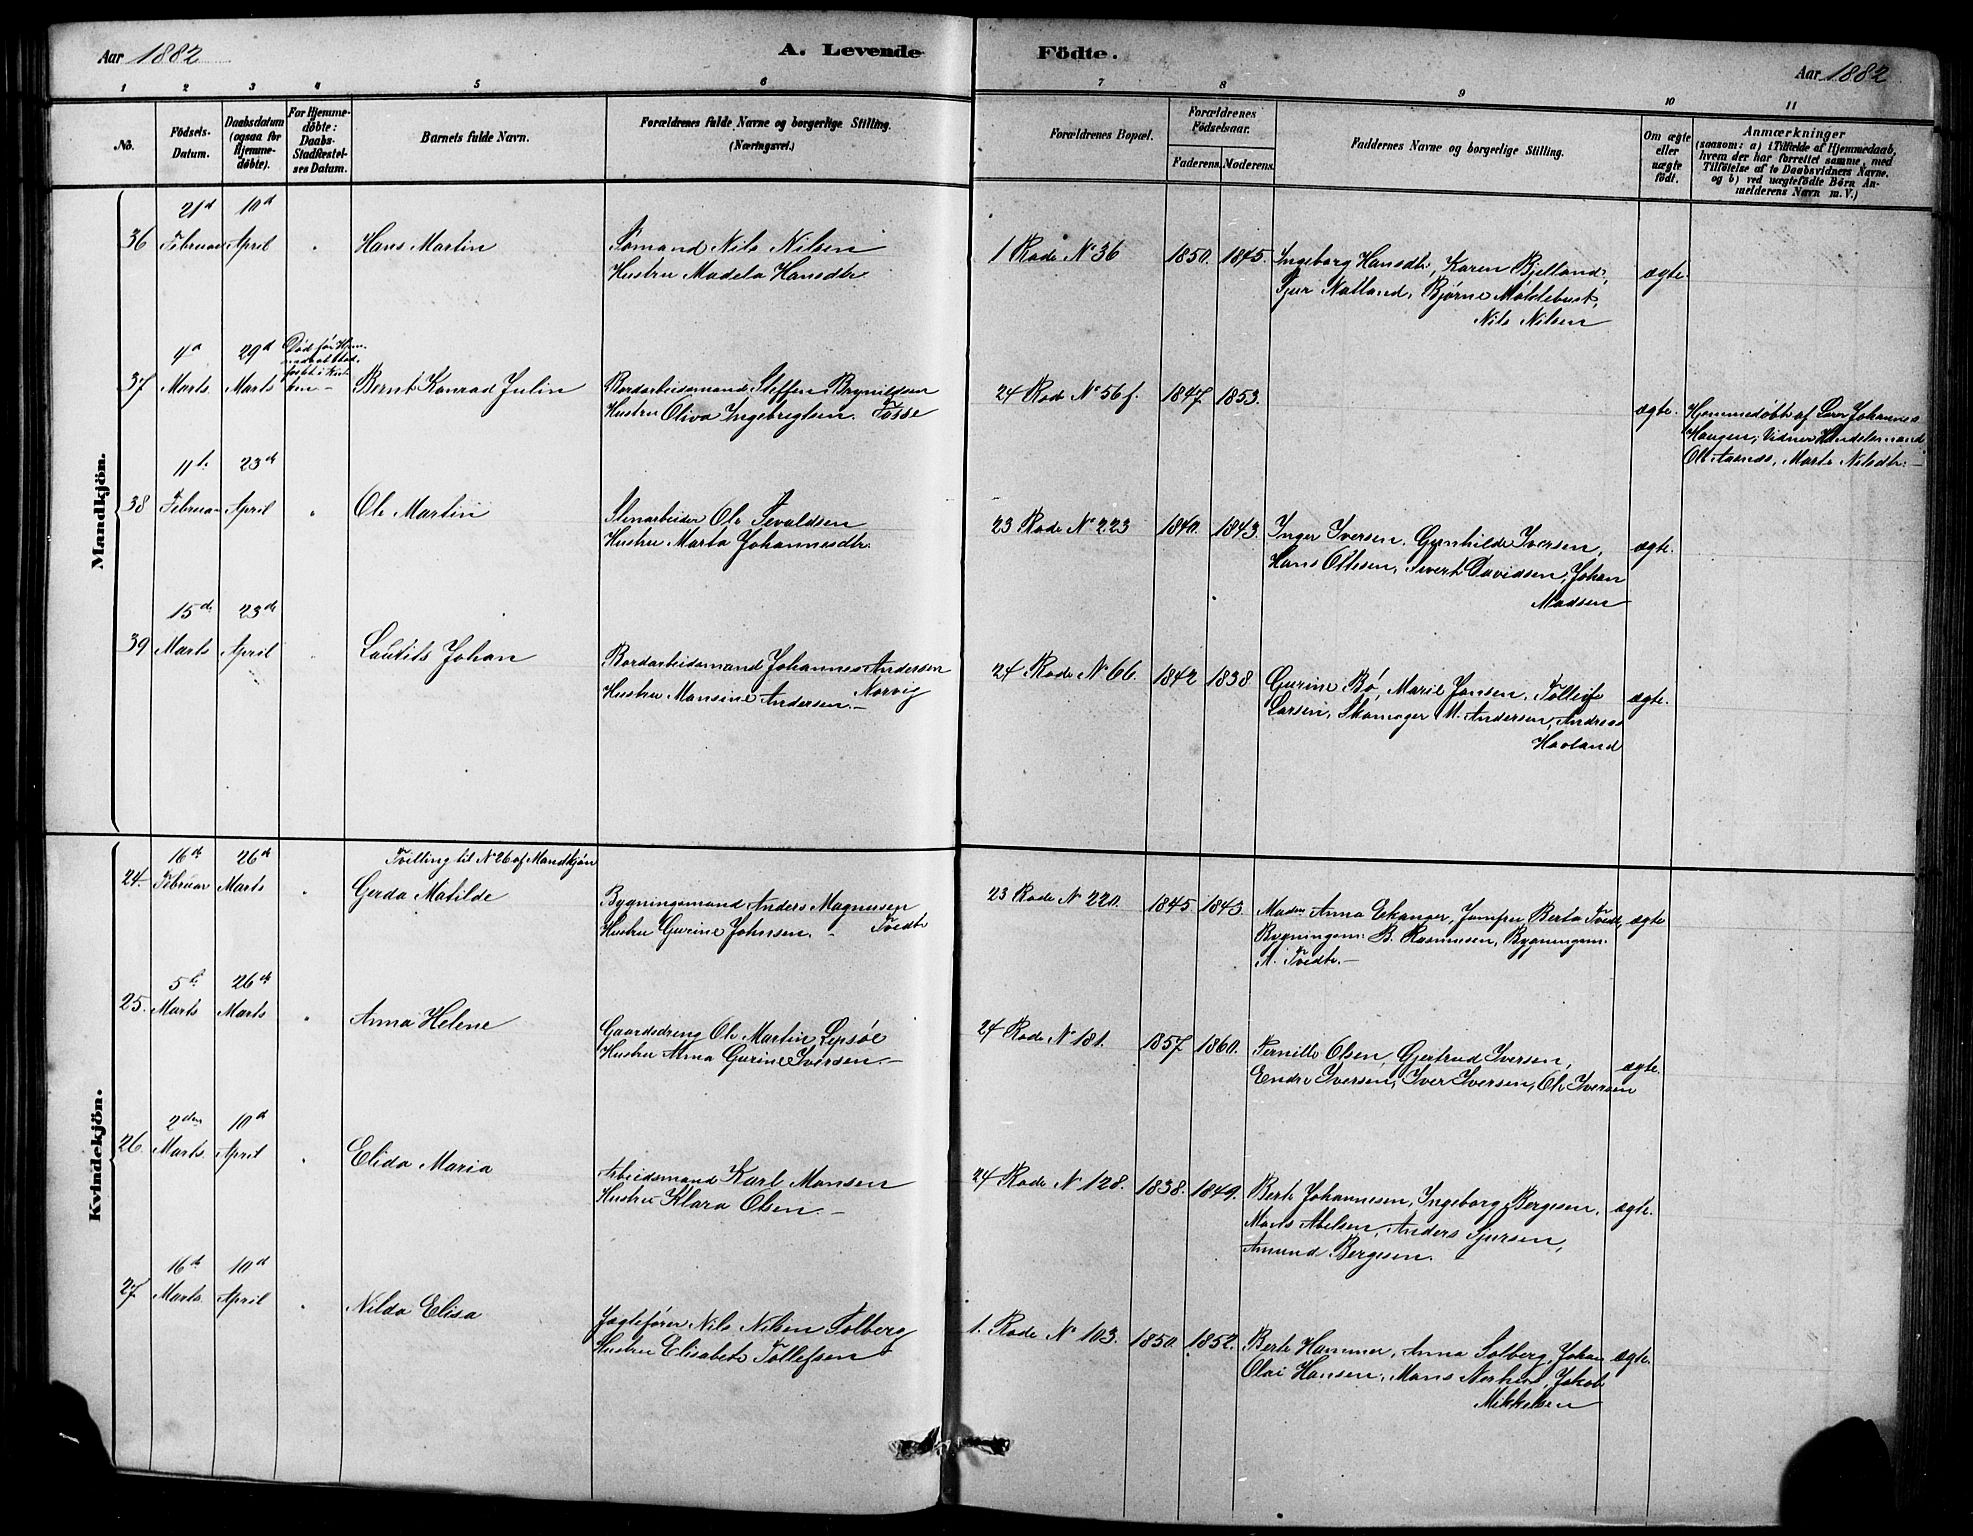 Aar 1882
A. Levende
Födte.
Aar 1882
1 2 3 4 5 6
7 8 9 10 11
No.
Födsels-Datum.
Daabsdatum (ogsaa for Hjemme-døbte).
For Hjemme-døbte: Daabs-Stadfæstel-ses Datum.
Barnets fulde Navn.
Forældrenes fulde Navne og borgerlige Stilling.
(Næringsvei.)
Forældrenes Bopæl.
Forældrenes Födselsaar.
Faderens. Moderens.
Faddernes Navne og borgerlige Stilling.
Om ægte eller uægte født.
Anmærkninger
(saasom: a) i Tilfælde af Hjemmedaab,
hvem der har forrettet samme, med
Tilföielse af to Daabsvidners Navne.
og b) ved uægtefødte Börn An-
melderens Navn m. V.)
Mandkjön.
21d 10d
36 Februar April " Hans Martin
Sömand Nils Nilsen
Hustru Madela Hansdtr.
1 Rode No 36 1850. 1845.
Ingeborg Hansdtr., Karen Bjelland,
Sjur Natland, Bjørne Moldebust,
Nils Nilsen
ægte.
4d 29d Död før
37 Marts Marts Bernt Konrad Julin
Bordarbeidsmand Steffen Brynildsen
Hustru Oliva Ingebrigtsen. Fosse
24 Rode No 56 f. 1847. 1853.
ægte.
Hjemmedøbt af Lærer Johannes
Haugen; Vidner Handelsmand
Ole Aarnes, Marte Nilsdtr. —
11te 23de
38 Februar April " Ole Martin
Stenarbeider Ole Sevaldsen
Hustru Marta Johannesdtr.
23 Rode No 223 1840. 1843.
Inger Iversen, Gunhilde Iversen,
Hans Ottesen, Sivert Davidsen, Johan
Madsen
ægte.
15de 23de
39 Marts April Laurits Johan
Bordarbeidsmand Johannes Andersen
Hustru Monsine Andersen. — Norvig
24 Rode No 66. 1842 1838
Gurine Bø, Marie Jansen, Tolleif
Larsen, Skomager M. Andersen, Andreas
Havland
ægte.
Kvindekjön.
16de 26de Tvilling til No 26 af Mandkjön
24. Februar Marts " Gerda Matilde
Bygningsmand Anders Magnusen
Hustru Gurine Johnsen. - Tvedt
23 Rode No 220. 1845. 1843.
Madm Anna Ekanger, Jomfru Berta Tvedt,
Bygningsm. B. Rasmusen, Bygningsm.
A. Tvedt. —
ægte
5te 26de
25. Marts Marts " Anna Helene
Gaardsdreng Ole Martin Lepsöe
Hustru Anna Gurine Iversen. —
24 Rode No 181. 1857 1860.
Pernille Olsen, Gjertrud Iversen,
Endre Iversen, Iver Iversen, Ole Iversen
ægte.
2den 10d
26. Marts April " Elida Maria
Arbeidsmand Karl Monsen
Hustru Klara Olsen. —
24 Rode No 128. 1838. 1849.
Berte Johannesen, Ingeborg Bergesen,
Mons Abelsen, Anders Sjursen,
Amund Bergesen.
ægte.
16de 10d
27. Marts April " Nilda Elisa
Jægtefører Nils Nilsen Solberg
Hustru Elisabet Tollefsen
1. Rode No 103. 1850. 1852.
Berte Hammer, Anna Solberg, Johan
Olai Hansen, Mons, Jakob
Mikkelsen
ægte.